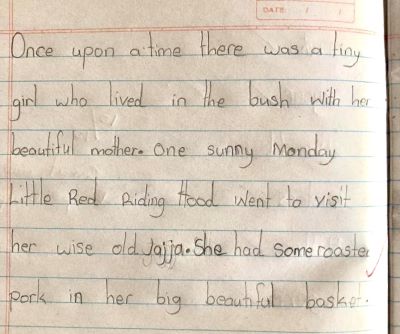 DATE / /
Once upon a time there was a tiny
girl who lived in the bush with her
beautiful mother. One sunny Monday
Little Red Riding Hood Went to visit
her wise old Jajja. She had some rooster
pork in her big beautiful basket.